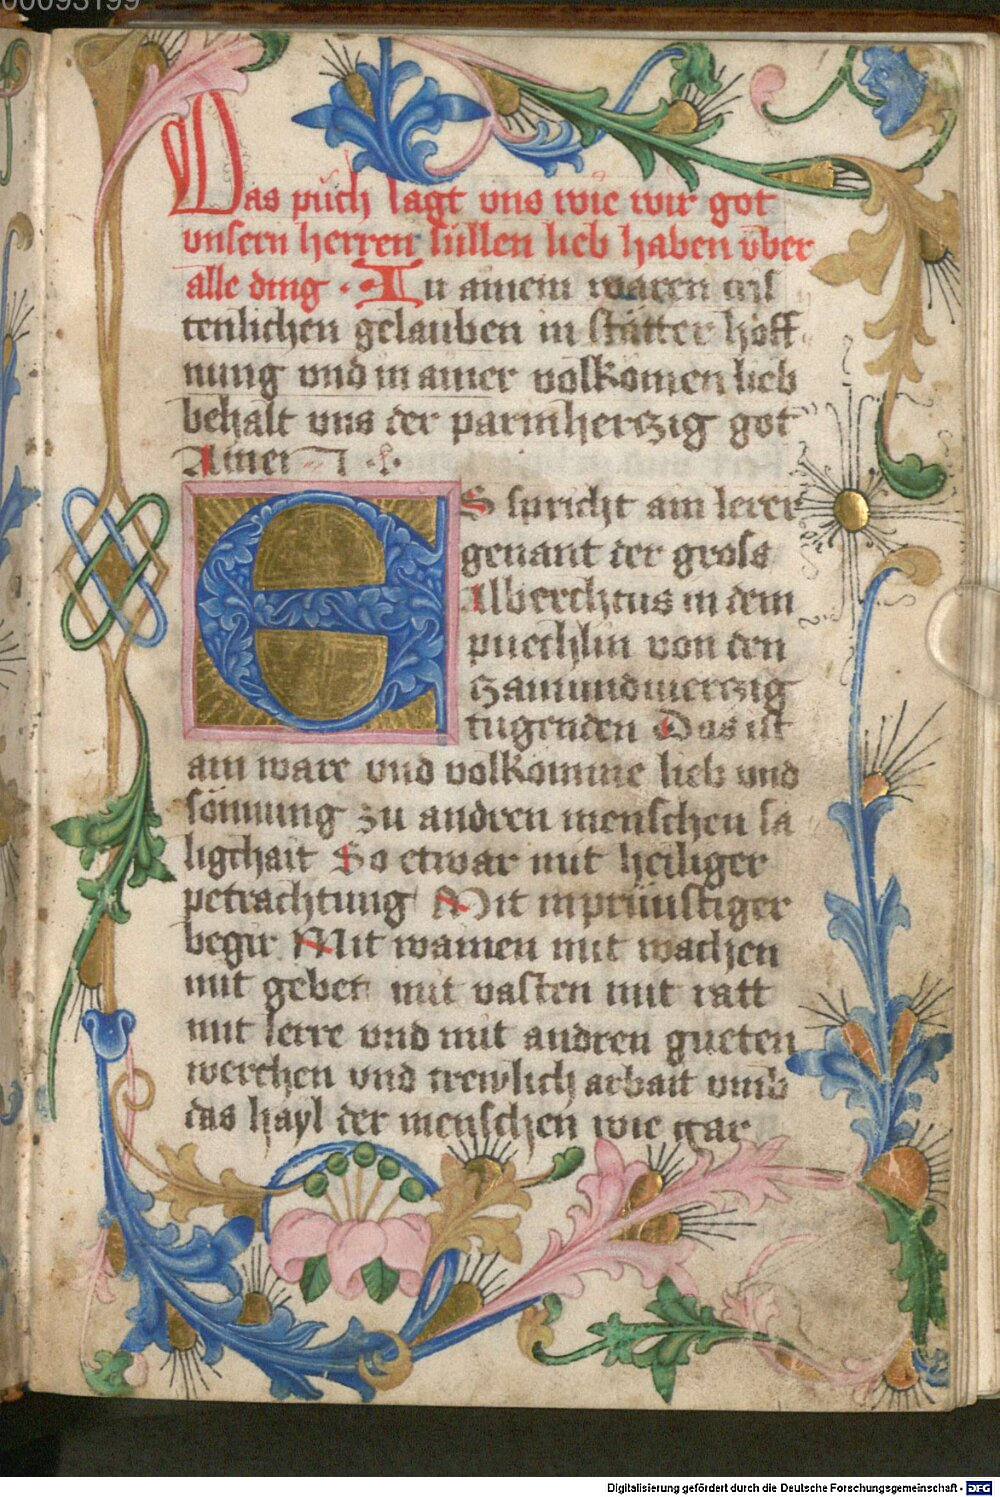 00093199
Das půch sagt vns wie wir got
vnsern herren süllen lieb haben vber
alle ding · In ainem waren cris
tenlichen gelauben in stätter hoff
nung vnd in ainer volkomen lieb
behalt vns der parmherczig got
Amen
ES spricht ain lerer
genant der gross
Alberchtus in dem
puechlin von den
tugenden Das ist
ain ware vnd volkomne lieb vnd
zu andren menschen sä
ligchait So etwar mit heiliger
petrachtung Mit inprünstiger
begir Mit wainen mit wachen
mit gebet mit vasten mit ratt
mit lerre vnd mit andren gueten
werchen vnd trewlich arbait vmb
das hayl der menschen wie gar
Digitalisierung gefördert durch die Deutsche Forschungsgemeinschaft - DFG